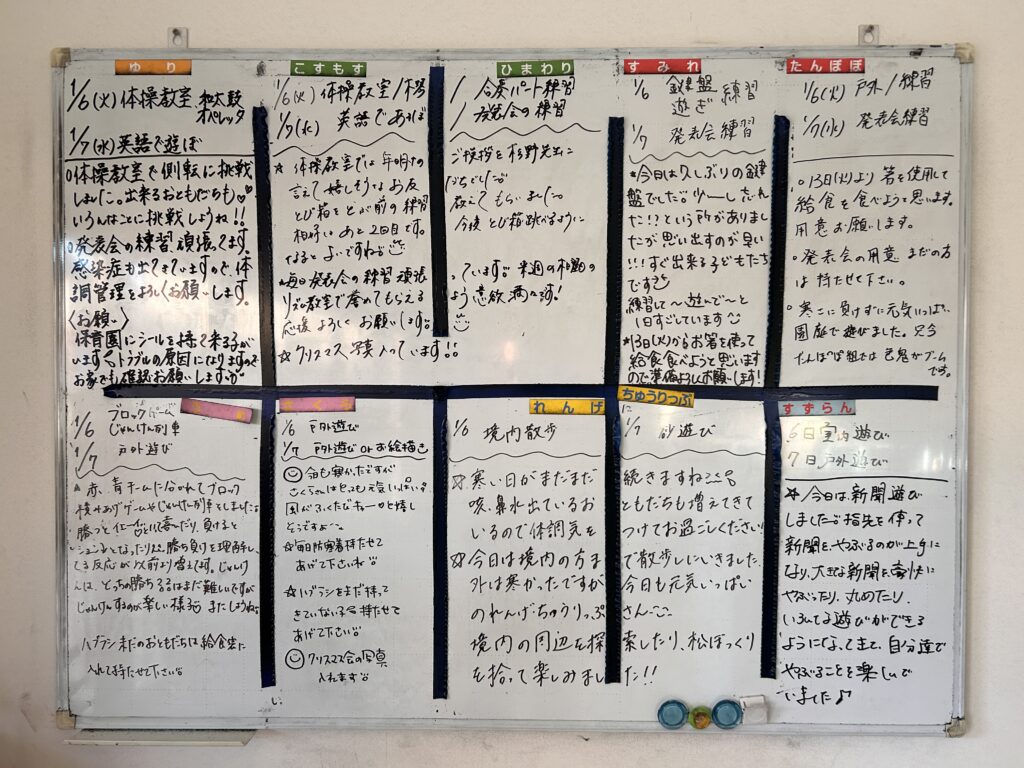 ゆり
1/6(火)体操教室 和太鼓
オペレッタ
1/7(水)英語で遊ぼ
○体操教室で側転に挑戦
しました。出来るおともだちも♡
いろんなことに挑戦しようね!!
○発表会の練習頑張ってます。
感染症も出てきていますので、体
調管理をよろしくお願いします。
〈お願い〉
保育園にシールを持って来る子が
います。トラブルの原因になりますので
お家でも確認お願いします
こすもす
1/6(火) 体操教室/
1/7(水) 英語であそぼ
☆ 体操教室では年明けの
言えて嬉しそうなお友
とび箱をとぶ前の練習
あと2回目です。
☆毎日発表会の練習頑張
リズム教室で誉めてもらえる
応援よろしくお願いします
☆クリスマス写真入っています!!
ひまわり
合奏パート練習
発表会の練習
ご挨拶を杉野先生に
教えてもらいました。
今後とび箱跳べるように
ています。来週の
よう意欲満々です!
すみれ
1/6 鍵盤 練習
遊ぎ
1/7 発表会練習
*今日は久しぶりの鍵
盤でした。少ーし忘れ
た!?という所がありまし
たが思い出すのが早い
!!すぐ出来る子どもたち
です
練習して〜遊んで〜と
1日すごしています
*13日(火)からお箸を使って
給食食べようと思います
ので準備よろしくお願いします!
たんぽぽ
1/6(火) 戸外/練習
1/7(水) 発表会練習
○13日(火)より箸を使用して
給食を食べようと思います。
用意お願いします。
○発表会の用意まだの方
は持たせて下さい。
○寒さに負けずに元気いっぱい
園庭で遊びました。只今
たんぽぽ組では色鬼がブーム
です。
1/6 ブロックゲーム
じゃんけん列車
1/7 戸外遊び
赤、青チームに分かれてブロック
積みあげゲームやじゃんけん列車をしました
勝つとイエーイと言って喜んだり、負けると
勝ち負けを理解し
てる反応が以前より増えてます。じゃんけ
んは、どっちの勝ち
まだ難しいですが
じゃんけんするのが楽しい様子
またしようね
ハブラシまだのおともだちは給食袋に
入れて持たせて下さい
さくら
1/6 戸外遊び
1/7 戸外遊びorお絵描き
今日も寒かったですが
さくらさんはとっても元気いっぱい!
☆毎日防寒着持たせて
あげて下さいね
☆ハブラシをまだ持って
きていない子は持たせて
あげて下さい
クリスマス会の写真
入れます
れんげ
1/6 境内散歩
☆寒い日がまだまだ
咳、鼻水出ているお
いるので体調気を
☆今日は境内の方ま
外は寒かったですが
のれんげ・ちゅうりっぷ
境内の周辺を探
を拾って楽しみまし
ちゅうりっぷ
1/7 砂遊び
続きますね
ともだちも増えてきて
つけてお過ごしください
で散歩しにいきました。
今日も元気いっぱい
さん
索したり、松ぼっくり
た!!
すずらん
6日室内遊び
7日戸外遊び
☆今日は新聞遊び
しました 指先を使って
新聞をやぶるのが上手に
なり、大きな新聞を豪快に
やぶったり、丸めたり
いろんな遊びができる
ようになってきて、自分達で
やぶることを楽しんで
いました♪